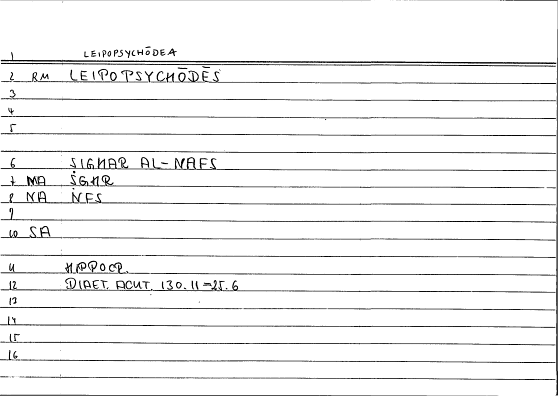 1 LEIPOPSYCHŌDEA
2 RM LEIPOPSYCHŌDĒS
3
4
5
6 SIGHAR AL-NAFS
7 MA ṠGHR
8 NA NFS
9
10 SA
11 HIPPOCR.
12 DIAET. ACUT. 130.11=25.6
13
14
15
16